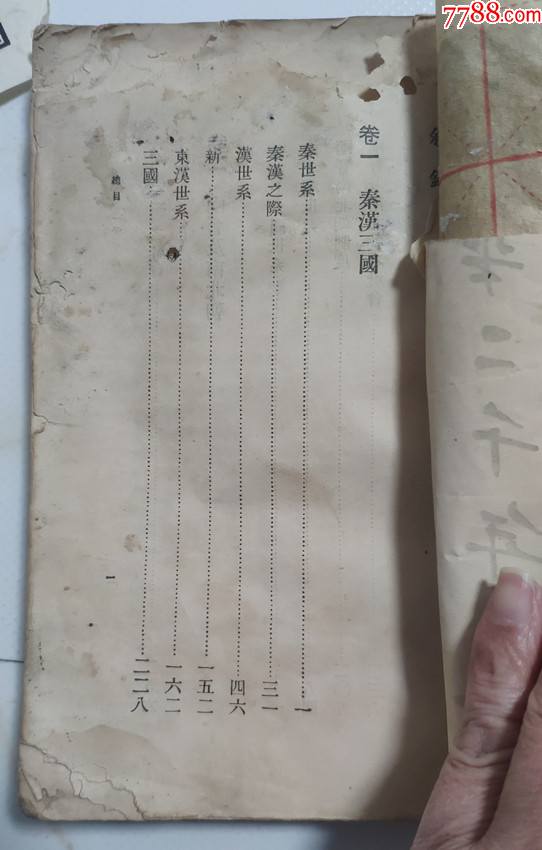 7788.com
卷一 秦漢三國
秦世系 一
秦漢之際 三一
漢世系 四六
新 一五二
東漢世系 一六二
三國 二二八
總目
一
二千年